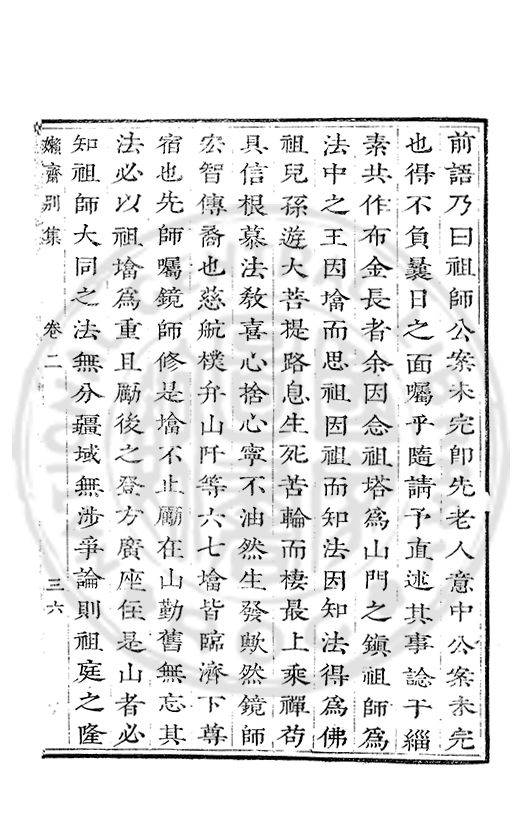 前語乃曰祖師公案未完卽先老人意中公案未完
也得不負曩日之面囑乎隨請予直述其事諗于緇
素共作布金長者余因念祖塔爲山門之鎭祖師爲
法中之王因墖而思祖因祖而知法因知法得爲佛
祖兒孫遊大菩提路息生死苦輪而棲最上乘禪苟
具信根慕法敎喜心捨心寧不油然生發歟然鏡師
宏智傳裔也慈航樸弁山阡等六七墖皆臨濟下尊
宿也先師囑鏡師修是墖不止勵在山勤舊無忘其
法必以祖墖爲重且勵後之登方廣座住是山者必
知祖師大同之法無分疆域無涉爭論則祖庭之隆
嬾齋别集　卷二　三六